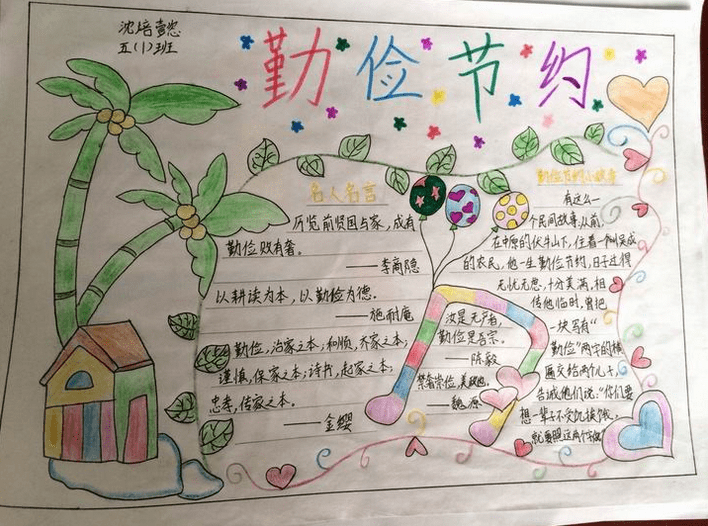 沈培懿
五(1)班
勤俭节约
名人名言
历览前贤国与家,成有
勤俭败有奢。
——李商隐
以耕读为本,以勤俭为德。
——施耐庵
勤俭,治家之本;和顺,齐家之本;
谨慎,保家之本;诗书,起家之本;
忠孝,传家之本。
——金缨
汝是无产者,
勤俭是吾宗。
——陈毅
——魏源
勤俭节约小故事
有这么一
个民间故事,从前,
在中原的伏牛山下,住着一个叫吴成
的农民,他一生勤俭节约,日子过得
无忧无思,十分美满,相
传他临时,曾把
一块写有“
勤俭”两字的横
匾交给两个儿子,
告诫他们说:“你们要
想一辈子不受饥挨饿,
就要照这两个字做